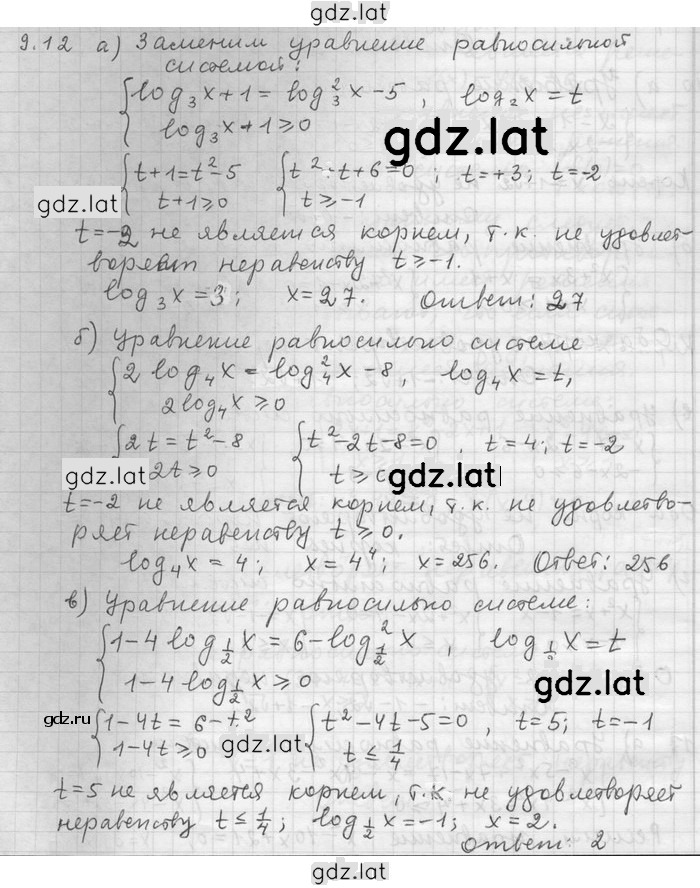 gdz.lat
9.12 а) Заменим уравнение равносильной
системой:
log₃x+1 = log₃²x-5 , log₂x = t
log₃x+1 ≥ 0
gdz.lat
t+1 = t²-5 t²-t+6=0 ; t=+3; t=-2
t+1 ≥ 0 t ≥ -1
gdz.lat
t=-2 не является корнем, т.к. не удовлет-
неравенству t ≥ -1.
log₃x = 3 ; x = 27. Ответ: 27
б) Уравнение равносильно системе
2 log₄x = log₄²x - 8 , log₄x = t,
2log₄x ≥ 0
2t = t²-8 t²-2t-8=0 , t=4; t=-2
gdz.lat 2t ≥ 0 t ≥ gdz.lat
t=-2 не является корнем, т.к. не удовлетво-
ряет неравенству t ≥ 0.
log₄x = 4 ; x = 4⁴ ; x = 256. Ответ: 256
в) Уравнение равносильно системе:
1-4 log½x = 6-log½²x , log½x = t
1-4log½x ≥ 0
gdz.lat
gdz.ru 1-4t = 6-t² t²-4t-5=0 , t=5; t=-1
1-4t ≥ 0 gdz.lat t ≤ 1/4
t=5 не является корнем, т.к. не удовлетворяет
неравенству t ≤ 1/4 ; log½x = -1 ; x = 2.
Ответ: 2
gdz.lat